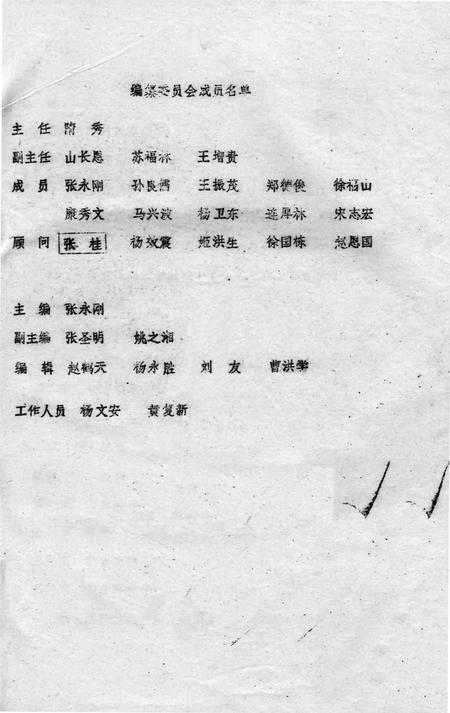 编纂委员会成员名单
主 任 隋 秀
副主任 山长恩 苏福林 王增贵
成 员 张永刚 孙良 王振茂 郑德俊 徐福山
康秀文 马兴波 杨卫东 连厚林 宋志宏
顾 问 张 桂 杨效震 姬洪生 徐国栋 赵恩国
主 编 张永刚
副主编 张圣明 姚之湘
编 辑 赵鹤天 杨永胜 刘 友 曹洪学
工作人员 杨文安 黄复新